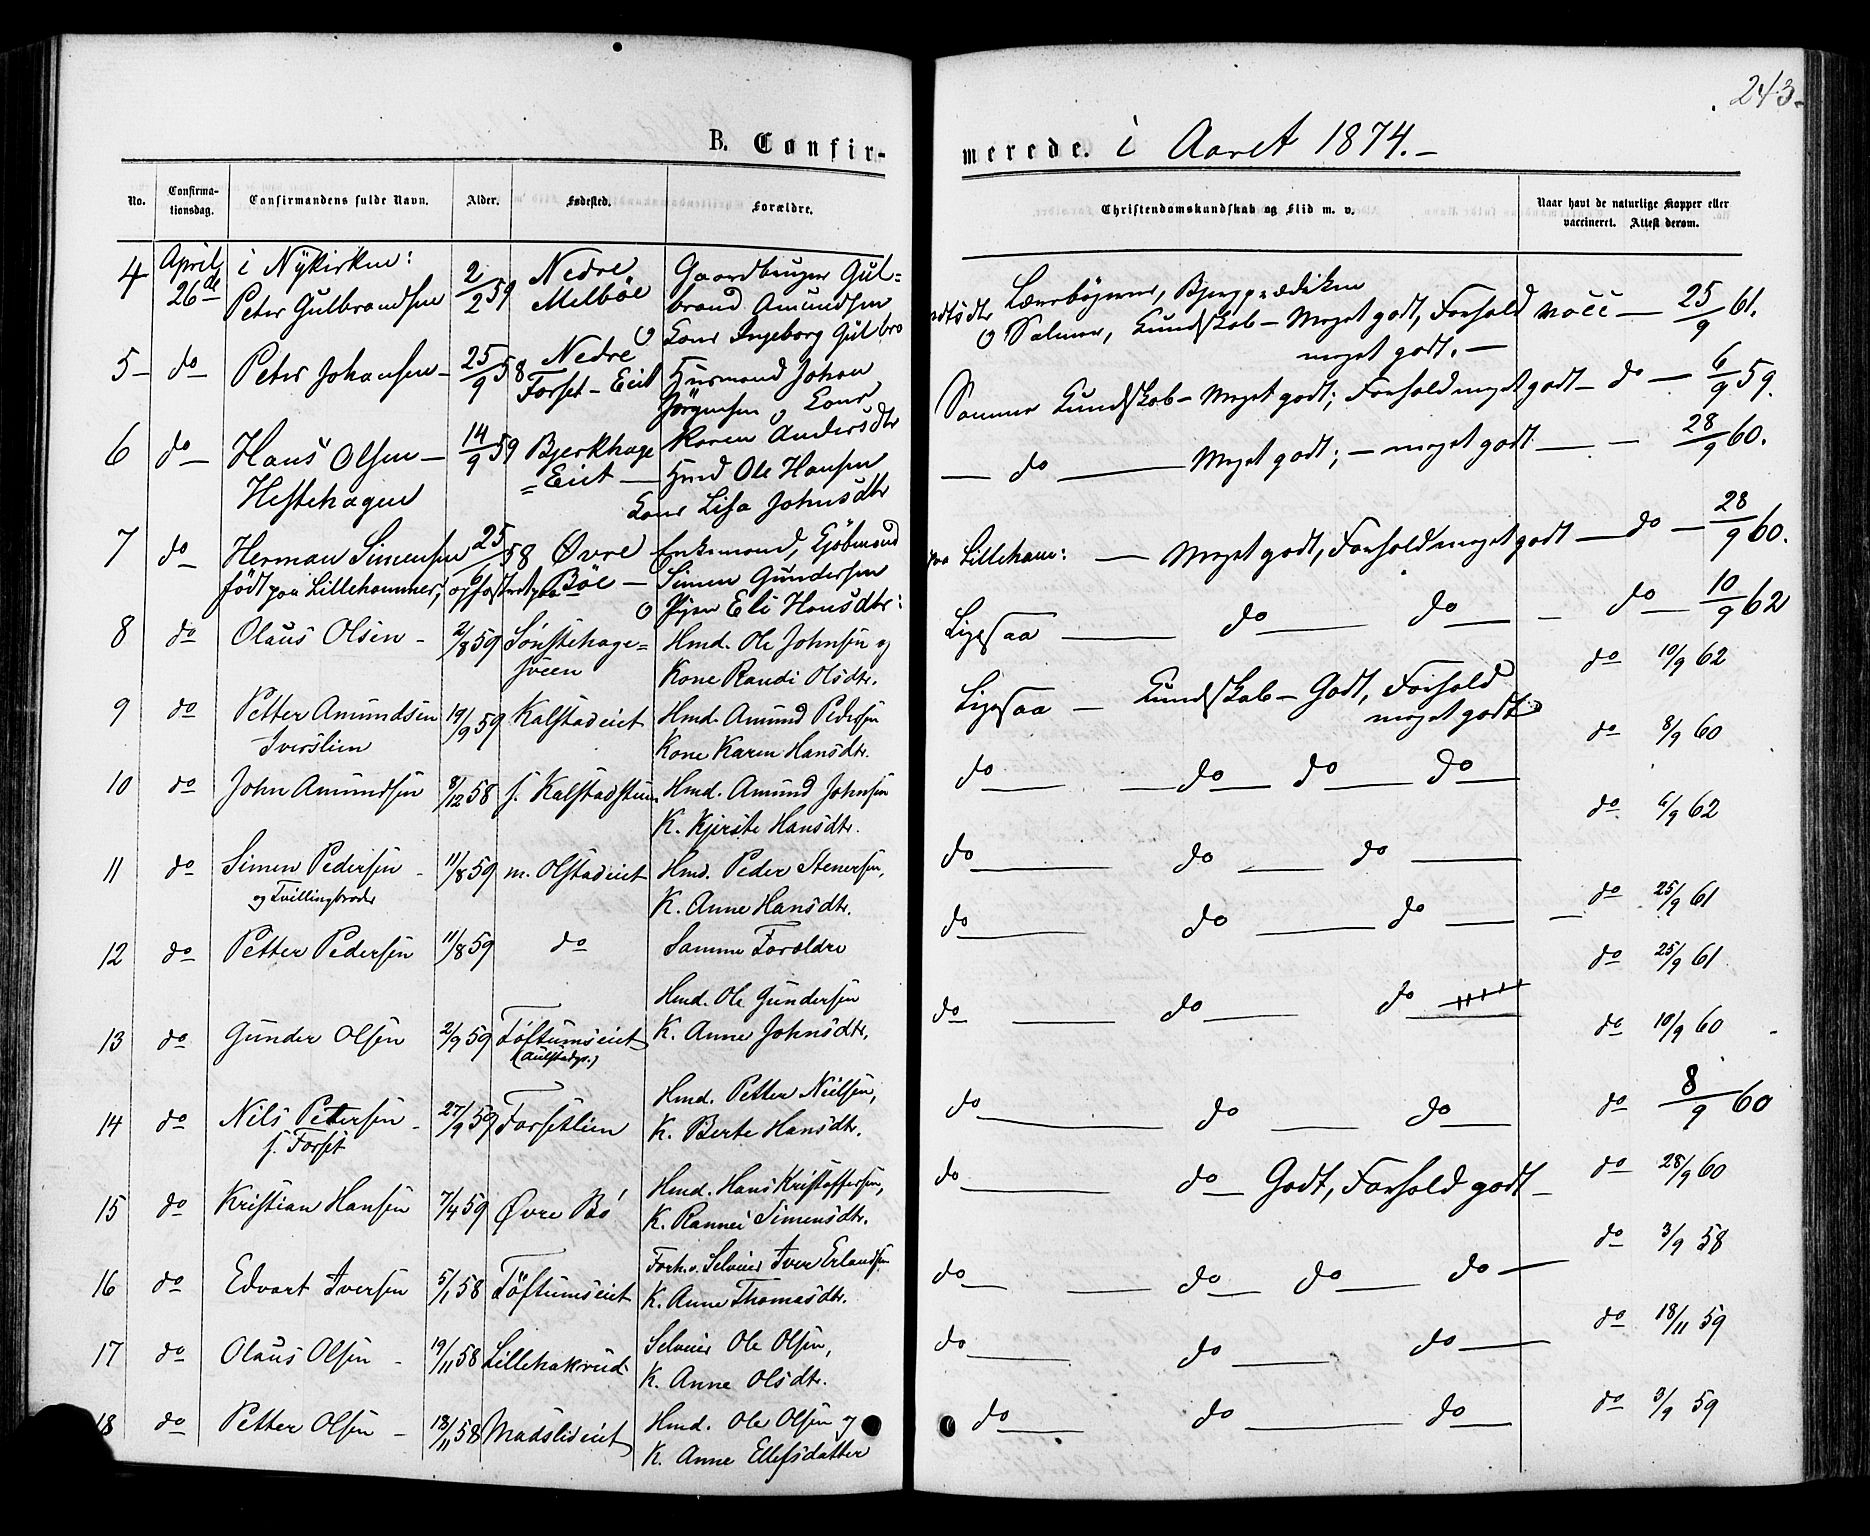 243.
B. Confir-
merede. i Aaret 1874.-
No.
Confirma-
tionsdag.
Confirmandens fulde Navn.
Alder.
Fødested.
Forældre.
Christendomskundskab og Flid m. v.
Naar havt de naturlige Kopper eller
vaccineret. Attest derom.
4 April 26de i Nykirken:
Peter Gulbrandsen 2/2 59 Nedre
Melböe
Gaardbruger Gul=
brand Amundsen
Kone Ingeborg Gulbr
Lærebögerne, Bjergprædiken
o Salmer, Kundskab - Meget godt, Forhold
meget godt. -
vacc - 25/9 61.
5 - do Peter Johansen - 25/9 58 Nedre
Forset - Eiet
Husmand Johan
Jörgensen o Kone
Karen Andersdtr
Samme Kundskab - Meget godt; Forhold meget godt - do - 6/9 59.
6 do - Hans Olsen -
Hestehagen
14/9 59 Bjerkhage
= Eiet -
Hmd Ole Hansen
Kone Lisa Johnsdtr
- do - Meget godt; - meget godt - - 28/9 60.
7 do - Herman Simensen
født paa Lillehammer, og fostret paa
25/6 58 Øvre
Böe -
Enkemand, Kjöbmand
Simen Gundersen
o Pigen Eli Hansdtr:
paa Lilleham: - Meget godt, Forhold meget godt - do - 28/9 60.
8 do Olaus Olsen - 2/8 59 Sönstehage=
sveen
Hmd. Ole Johnsen og
Kone Randi Olsdtr.
Ligesaa - do - do - - do - 10/9 62
9 do Petter Amundsen
Iverslien
19/9 59 Kalstadeiet
Hmd. Amund Pedersen
Kone Karen Hansdtr.
Ligesaa - Kundskab - Godt, Forhold
meget godt
do 10/9 62
10 do John Amundsen 8/12 58 s. Kalstadstuen
Hmd. Amund Johnsen
K. Kjerste Hansdtr.
do - do - do - do - do 8/9 60
11 do Simen Pedersen -
og Tvillingbroder
11/8 59 m. Olstadeiet
Hmd. Peder Stenersen,
K. Anne Hansdtr.
do - do - do - do 6/9 62
12 do Petter Pedersen 11/8 59 do Samme Forældre
do - do - do - - do 25/9 61
13 do Gunder Olsen 2/9 59 Töftumseiet
(Aulstadgr.)
Hmd. Ole Gundersen
K. Anne Johnsdtr.
do - do - do - do 25/9 61
do 10/9 60
14 do Nils Petersen -
s. Forset
27/9 59 Forsetlien
Hmd. Petter Nielsen,
K. Berte Hansdtr.
do - do - do - do 8/9 60
15 do Kristian Hansen 7/4 59 Øvre Bö
Hmd. Hans Kristoffersen,
K. Rannei Simensdtr.
do - do - Godt, Forhold godt - do 28/9 60
16 do Edvart Iversen 5/1 58 Töftumseiet
Forh.v. Selveier Iver Erlandsen
K. Anne Thomasdtr.
do - do - do - do - do 3/9 58
17 do Olaus Olsen - 19/11 58 Lillehakrud
Selveier Ole Olsen,
K. Anne Olsdtr.
do - do - do - do 18/11 59
18 do Petter Olsen - 18/11 58 Madslideiet
Hmd. Ole Olsen og
K. Anne Ellefsdatter
do - do - do - do 3/9 59